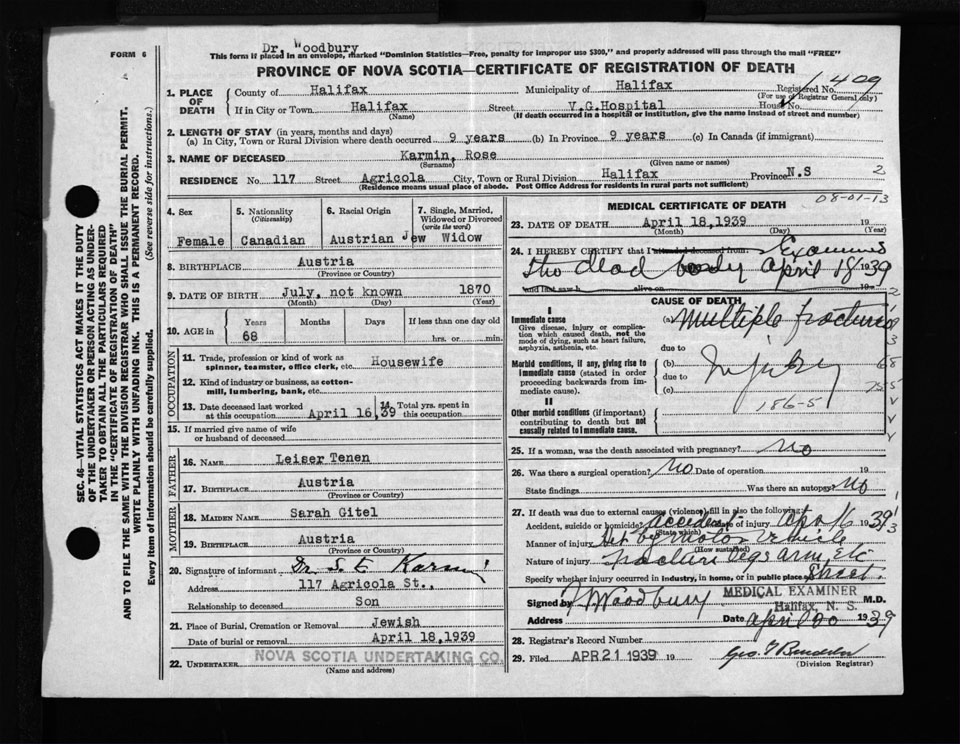 FORM 6
Dr. Woodbury
This form if placed in an envelope, marked "Dominion Statistics—Free, penalty for improper use $300," and properly addressed will pass through the mail "FREE"
PROVINCE OF NOVA SCOTIA—CERTIFICATE OF REGISTRATION OF DEATH
1. PLACE OF DEATH
County of Halifax Municipality of Halifax Registered No. 1409
(For use of Registrar General only)
If in City or Town Halifax Street V.G.Hospital House No.
(Name) (If death occurred in a hospital or institution, give the name instead of street and number)
2. LENGTH OF STAY (in years, months and days)
(a) In City, Town or Rural Division where death occurred 9 years (b) In Province 9 years (c) In Canada (if immigrant)
3. NAME OF DECEASED Karmin, Rose
(Surname) (Given name or names)
RESIDENCE No. 117 Street Agricola City, Town or Rural Division Halifax Province N.S 2
(Residence means usual place of abode. Post Office Address for residents in rural parts not sufficient)
08-01-13
4. Sex
Female
5. Nationality
(Citizenship)
Canadian
6. Racial Origin
Austrian Jew
7. Single, Married, Widowed or Divorced
(write the word)
Widow
8. BIRTHPLACE Austria
(Province or Country)
9. DATE OF BIRTH July, not known 1870
(Month) (Day) (Year)
10. AGE in
Years Months Days If less than one day old
68 hrs. or min.
OCCUPATION
11. Trade, profession or kind of work as spinner, teamster, office clerk, etc. Housewife
12. Kind of industry or business, as cotton-mill, lumbering, bank, etc.
13. Date deceased last worked at this occupation April 16, 39
14. Total yrs. spent in this occupation
15. If married give name of wife or husband of deceased
FATHER
16. NAME Leiser Tenen
17. BIRTHPLACE Austria
(Province or Country)
MOTHER
18. MAIDEN NAME Sarah Gitel
19. BIRTHPLACE Austria
(Province or Country)
20. Signature of informant Dr. S. E. Karmin
Address 117 Agricola St.,
Relationship to deceased Son
21. Place of Burial, Cremation or Removal Jewish
Date of burial or removal April 18,1939
22. UNDERTAKER NOVA SCOTIA UNDERTAKING CO.
(Name and address)
MEDICAL CERTIFICATE OF DEATH
23. DATE OF DEATH April 18,1939 19
(Month) (Day) (Year)
24. I HEREBY CERTIFY that I attended deceased from Examined
the dead body April 18 1939
and last saw h alive on 19
CAUSE OF DEATH
I
Immediate cause (a) Multiple fractures
Give disease, injury or complication which caused death, not the mode of dying, such as heart failure, asphyxia, asthenia, etc.
due to
Morbid conditions, if any, giving rise to immediate cause (stated in order proceeding backwards from immediate cause).
(b) Injury
due to
(c)
186-5
II
Other morbid conditions (if important) contributing to death but not causally related to immediate cause.
25. If a woman, was the death associated with pregnancy? No
26. Was there a surgical operation? No Date of operation 19
State findings Was there an autopsy? No
27. If death was due to external causes (violence) fill in also the following:
Accident, suicide or homicide? accident Date of injury Apr 16 1939
(State which)
Manner of injury Hit by motor vehicle
(How sustained)
Nature of injury Fracture legs arm, etc
Specify whether injury occurred in industry, in home, or in public place Street.
Signed by Woodbury MEDICAL EXAMINER M.D.
Halifax, N. S.
Address Date April 20 1939
28. Registrar's Record Number
29. Filed APR 21 1939 19 Geo.
(Division Registrar)
SEC. 46—VITAL STATISTICS ACT MAKES IT THE DUTY
OF THE UNDERTAKER OR PERSON ACTING AS UNDER-
TAKER TO OBTAIN ALL THE PARTICULARS REQUIRED
IN THE "CERTIFICATE OF REGISTRATION OF DEATH"
AND TO FILE THE SAME WITH THE DIVISION REGISTRAR WHO SHALL ISSUE THE BURIAL PERMIT.
WRITE PLAINLY WITH UNFADING INK. THIS IS A PERMANENT RECORD.
Every item of information should be carefully supplied. (See reverse side for instructions.)